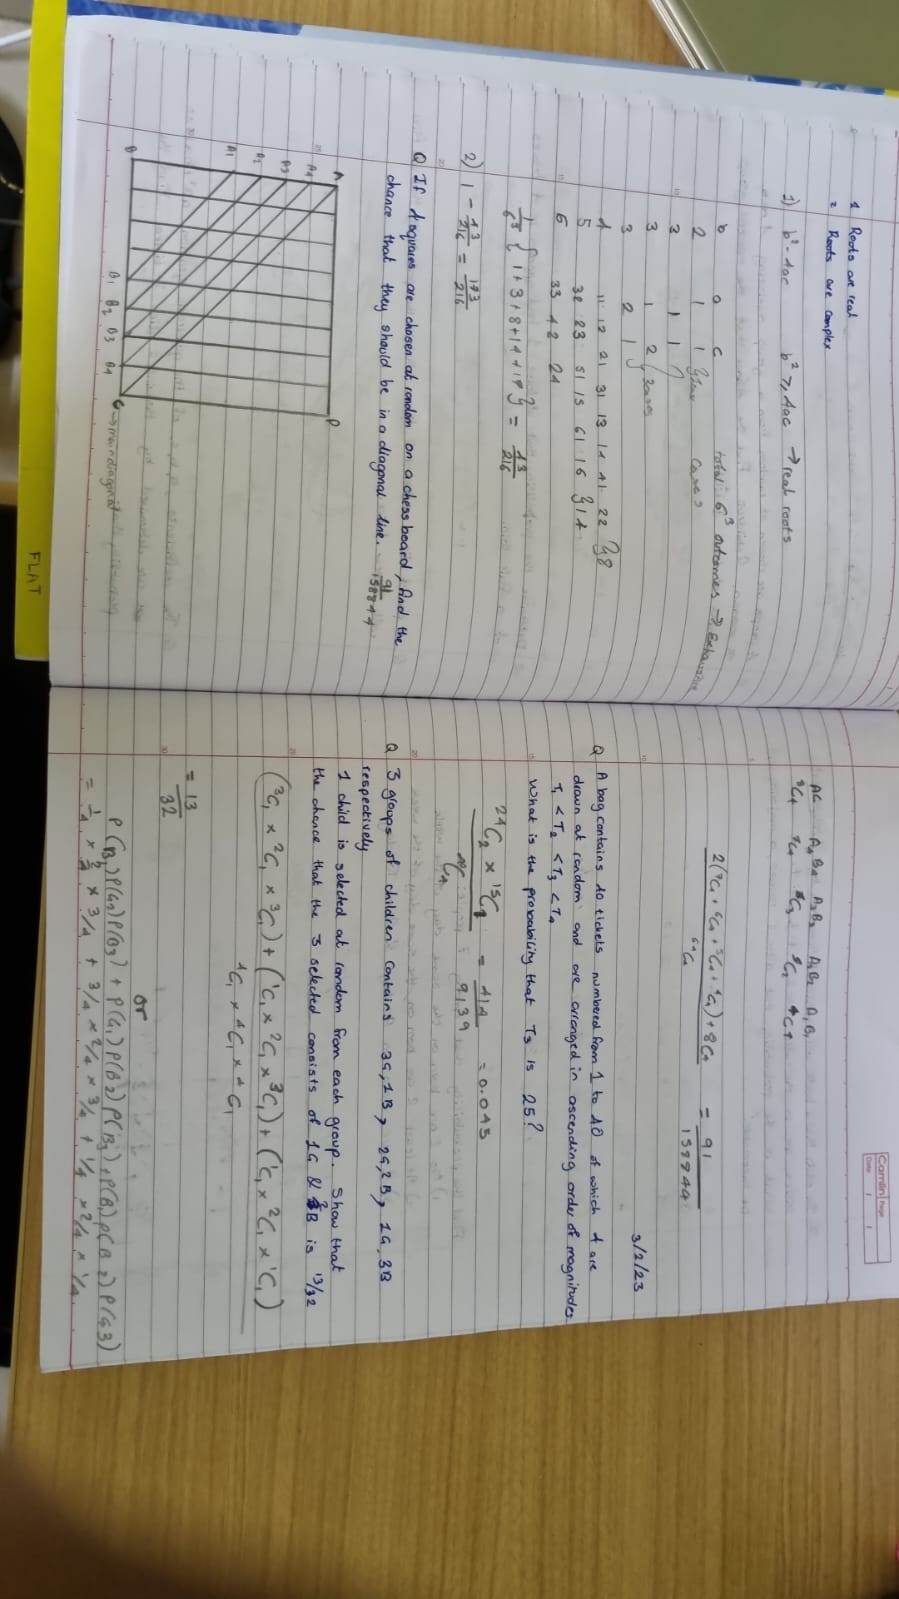 1 Roots are real
2 Roots are complex
1) b² - 4ac b² ≥ 4ac → real roots
total: 6³ outcomes → Exhaustive
b a c cases
2 1 1 }1
3 1 1
3 1 2 } 3 cases
3 2 1
4 11 12 21 31 13 14 41 22 }8
5 32 23 51 15 61 16 }14
6 33 42 24
1/6³ { 1+3+8+14+17 } = 43/216
2) 1 - 43/216 = 173/216
Q If 4 squares are chosen at random on a chess board, find the
chance that they should be in a diagonal line. 91/158844
A4 A
A3
A2
A1
B B1 B2 B3 B4 C → main diagonal
D
FLAT
Camlin Page
Date / /
AC A4B4 A3B3 A2B2 A1B1
⁸C4 ⁷C4 ⁶C4 ⁵C4 ⁴C4
2(⁷C4 + ⁶C4 + ⁵C4 + ⁴C4) + ⁸C4 = 91
⁶⁴C4 158844
3/2/23
Q A bag contains 40 tickets numbered from 1 to 40 of which 4 are
drawn at random and are arranged in ascending order of magnitudes
T₁ < T₂ < T₃ < T₄
What is the probability that T₃ is 25?
²⁴C₂ × ¹⁵C₁ = 414 = 0.045
⁴⁰C₄ 9139
Q 3 groups of children contains 3G,1B, 2G,2B, 1G,3B
respectively
1 child is selected at random from each group. Show that
the chance that the 3 selected consists of 1G & 2B is 13/32
(³C₁ × ²C₁ × ³C₁) + (¹C₁ × ²C₁ × ³C₁) + (¹C₁ × ²C₁ × ¹C₁)
⁴C₁ × ⁴C₁ × ⁴C₁
= 13
32
or
P(B₁)P(G₂)P(B₃) + P(G₁)P(B₂)P(B₃) + P(B₁)P(B₂)P(G3)
= 1/4 × 2/4 × 3/4 + 3/4 × 2/4 × 3/4 + 1/4 × 2/4 × 1/4